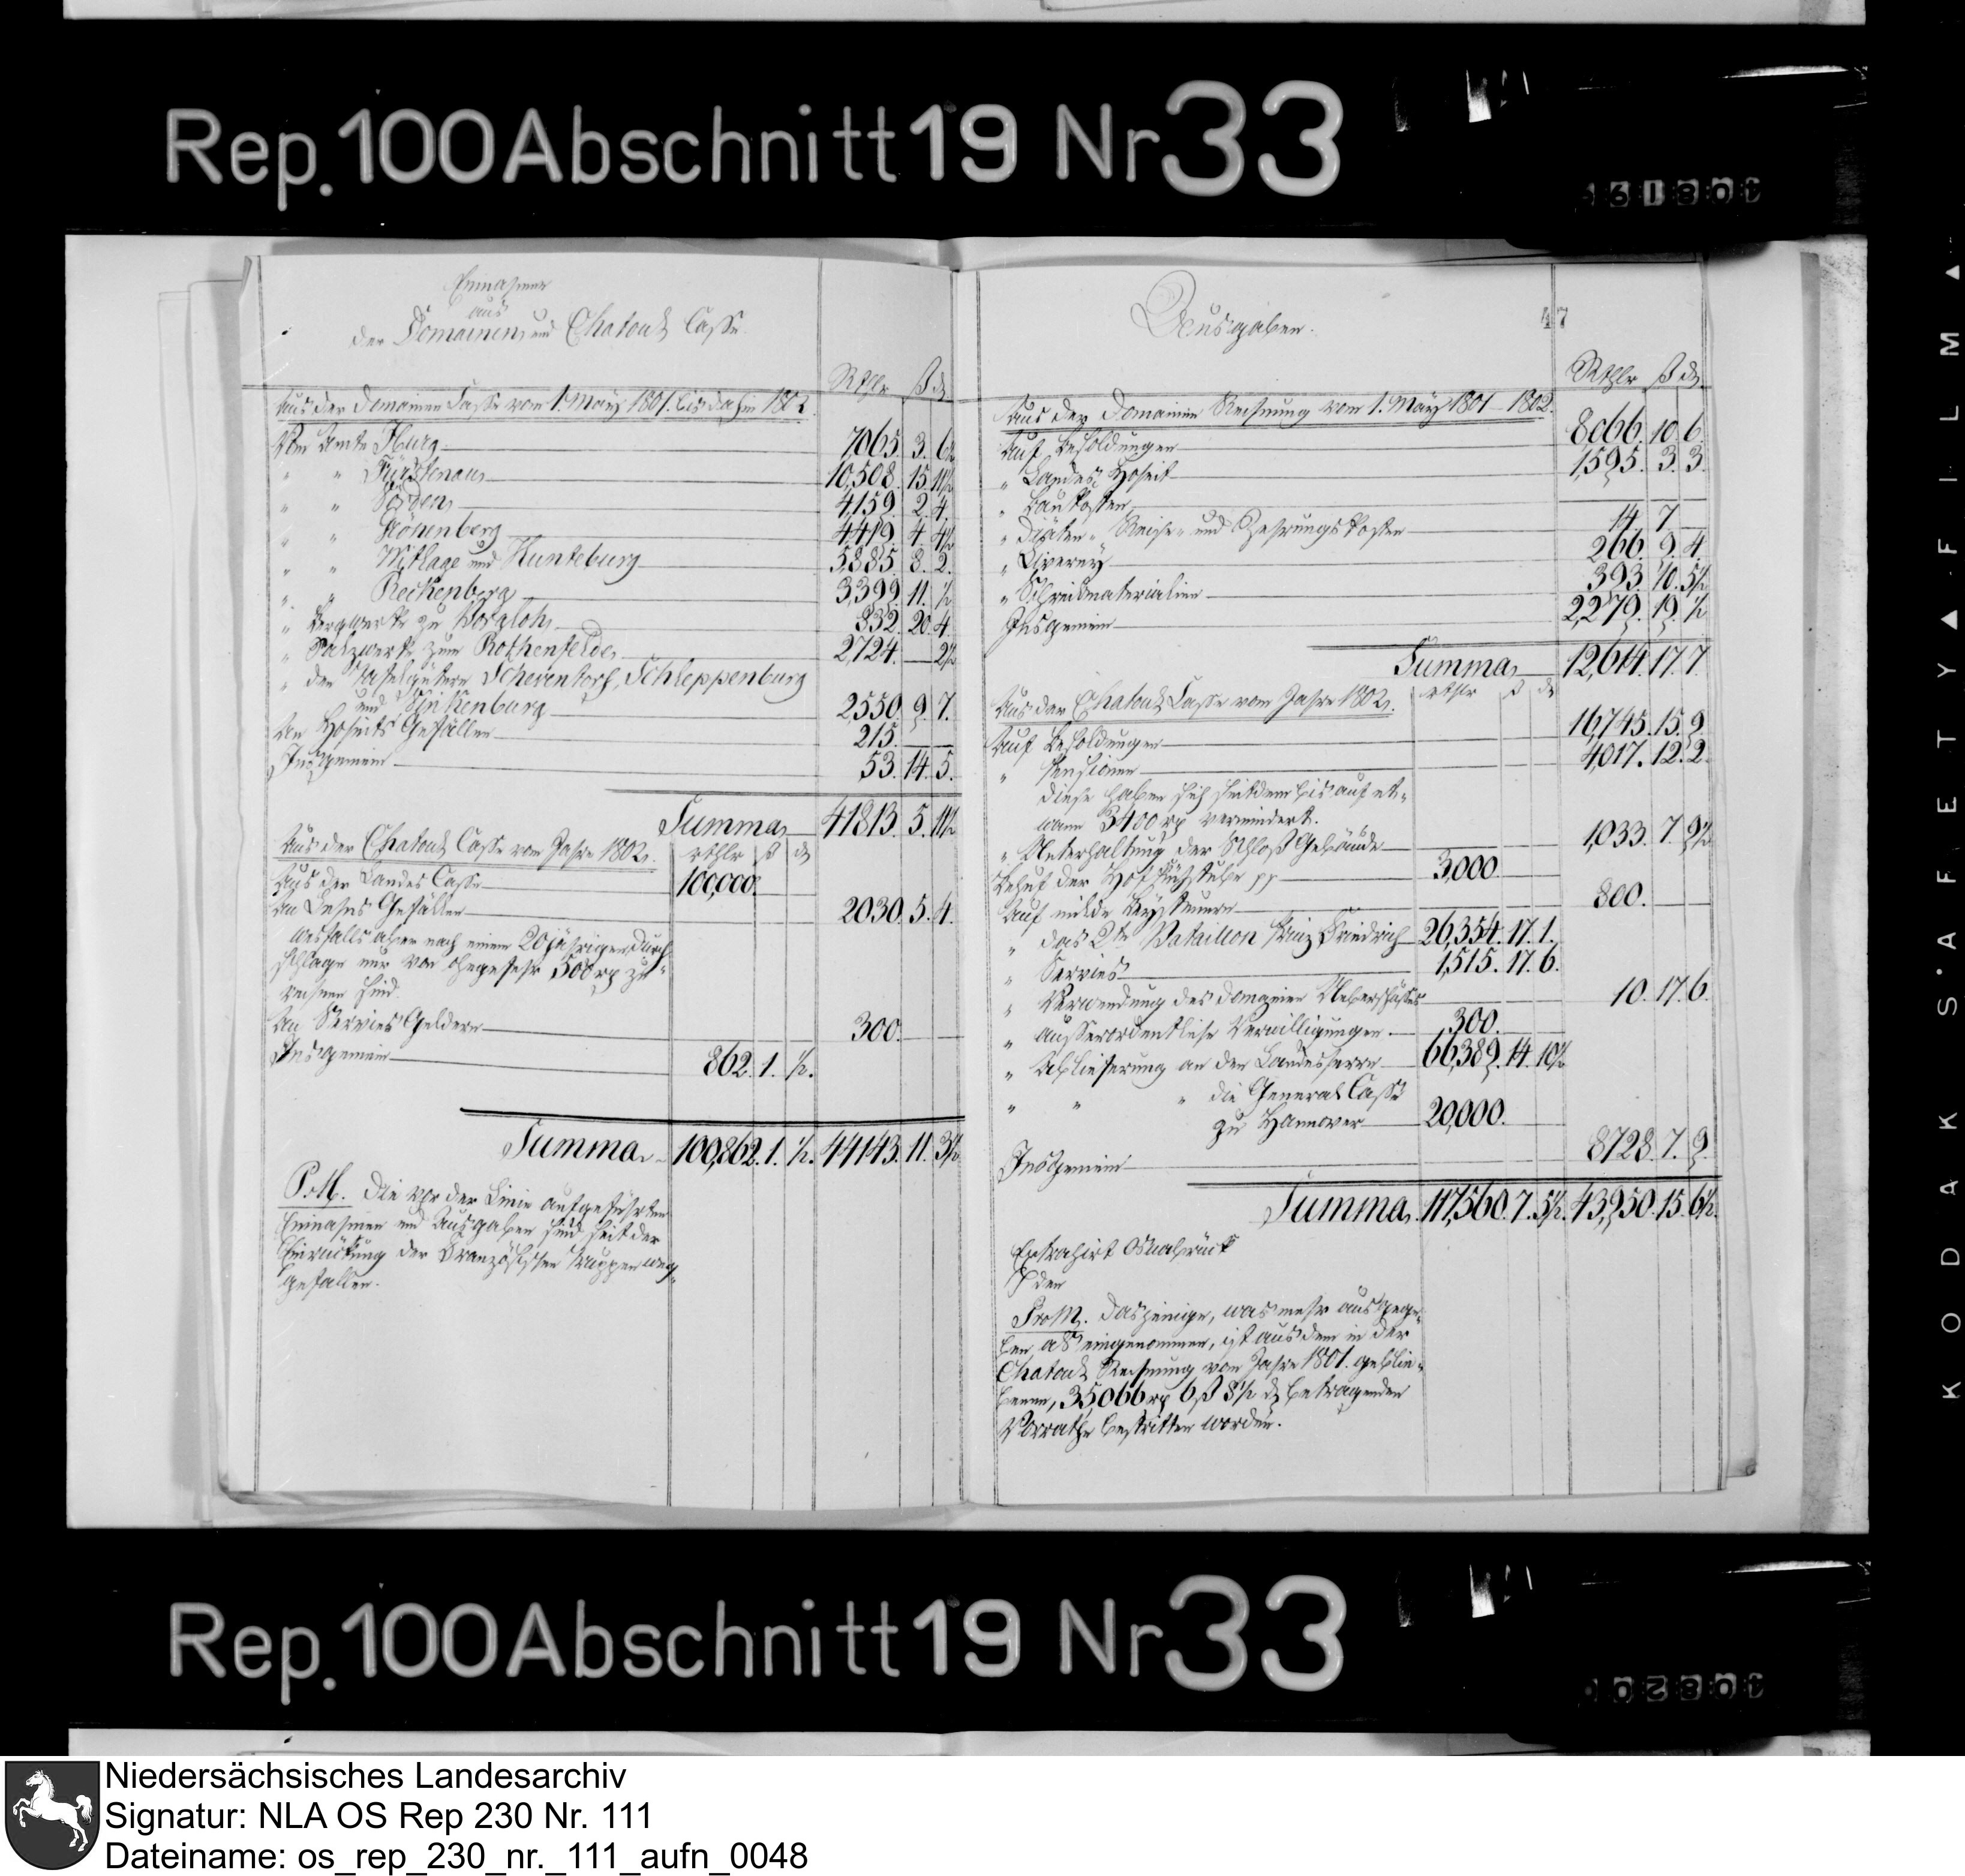 Rep. 100 Abschnitt 19 Nr 33
Einnahme
aus
der Domainen und Chatoul Casse
Rthlr ß d
Aus der Domainen Casse vom 1. May 1801. bis dahin 1802.
Vom Amte Iburg 7065. 3. 6½
" " Fürstenau 10,508. 15. 11½
" " Vörden 4,159. 2. 4.
" " Grönenberg 4419. 4. 4½
" " Wittlage und Hunteburg 5,885. 8. 2.
" " Reckenberg 3,399. 11. ½
" Bergwerke zu Borgloh 832. 20. 4.
" Salzwerke zum Rothenfelde 2,724. — 2½
" den Tafelgütern Scheventorf, Schleppenburg
und Wittenburg 2550. 9. 7.
An Hoheits Gefällen 215.
Insgemein 53. 14. 5.
Summa 41813. 5. 11½
Aus der Chatoul Casse vom Jahre 1802. rthlr ß d
Aus der Landes Casse 100,000.
An Lehns Gefällen 2030. 5. 4.
welche aber nach einem 20jährigen Durch-
schlage nur von ohngefehr 500 rp zu
rechnen sind.
An Servies Geldern 300.
Insgemein 862. 1. ½.
Summa 100,862. 1. ½. 44143. 11. 3½
P.M. Die vor der Linie aufgeführten
Einnahmen und Ausgaben sind seit der
Einrückung der Französischen Truppen weg-
gefallen.
Ausgaben.
47
Rthlr ß d
Aus der Domainen Rechnung vom 1. May 1801 - 1802.
Auf Besoldungen 8066. 10. 6.
" Landes Hoheit 1,595. 3. 3.
" Baukosten
" Diäten- Reise- und Zehrungs Kosten 14. 7. —
" Liverey 266. 9. 4.
" Schreibmaterialien 393. 10. 5½
Insgemein 2,279. 19. ½
Summa 12,614. 17. 7.
Aus der Chatoul Casse vom Jahre 1802. rthlr ß d
Auf Besoldungen 16,745. 15. 9.
" Pensionen 4,017. 12. 2.
diese haben sich seitdem bis auf et-
wann 3400 rp vermindert.
" Unterhaltung der Schloß Gebäude 1,033. 7. 9½
Behuf der Hof pp 3,000.
Auf milde Beysteuern 800.
" das 2te Bataillon Prinz Friedrich 26,354. 17. 1.
" Servies 1,515. 17. 6.
" Verwendung des Domainen Ueberschusses 10. 17. 6.
" ausserordentliche Verwilligungen 300.
" Ablieferung an den Landesherrn 66,389. 14. 10½
" " " die General Casse
zu Hannover 20,000.
Insgemein 8728. 7. 9.
Summa 117,560. 7. 5½. 43,950. 15. 6½.
Extrahirt Osnabrück
den
Pro M. dasjenige, was mehr ausgege-
ben als eingenommen, ist aus dem in der
Chatoul Rechnung vom Jahre 1801. geblie-
benen, 35,066 rp 6 ß 8½ d betragenden
Vorrathe bestritten worden.
Rep. 100 Abschnitt 19 Nr 33
KODAK S'AFETY▲FILM▲
Niedersächsisches Landesarchiv
Signatur: NLA OS Rep 230 Nr. 111
Dateiname: os_rep_230_nr._111_aufn_0048